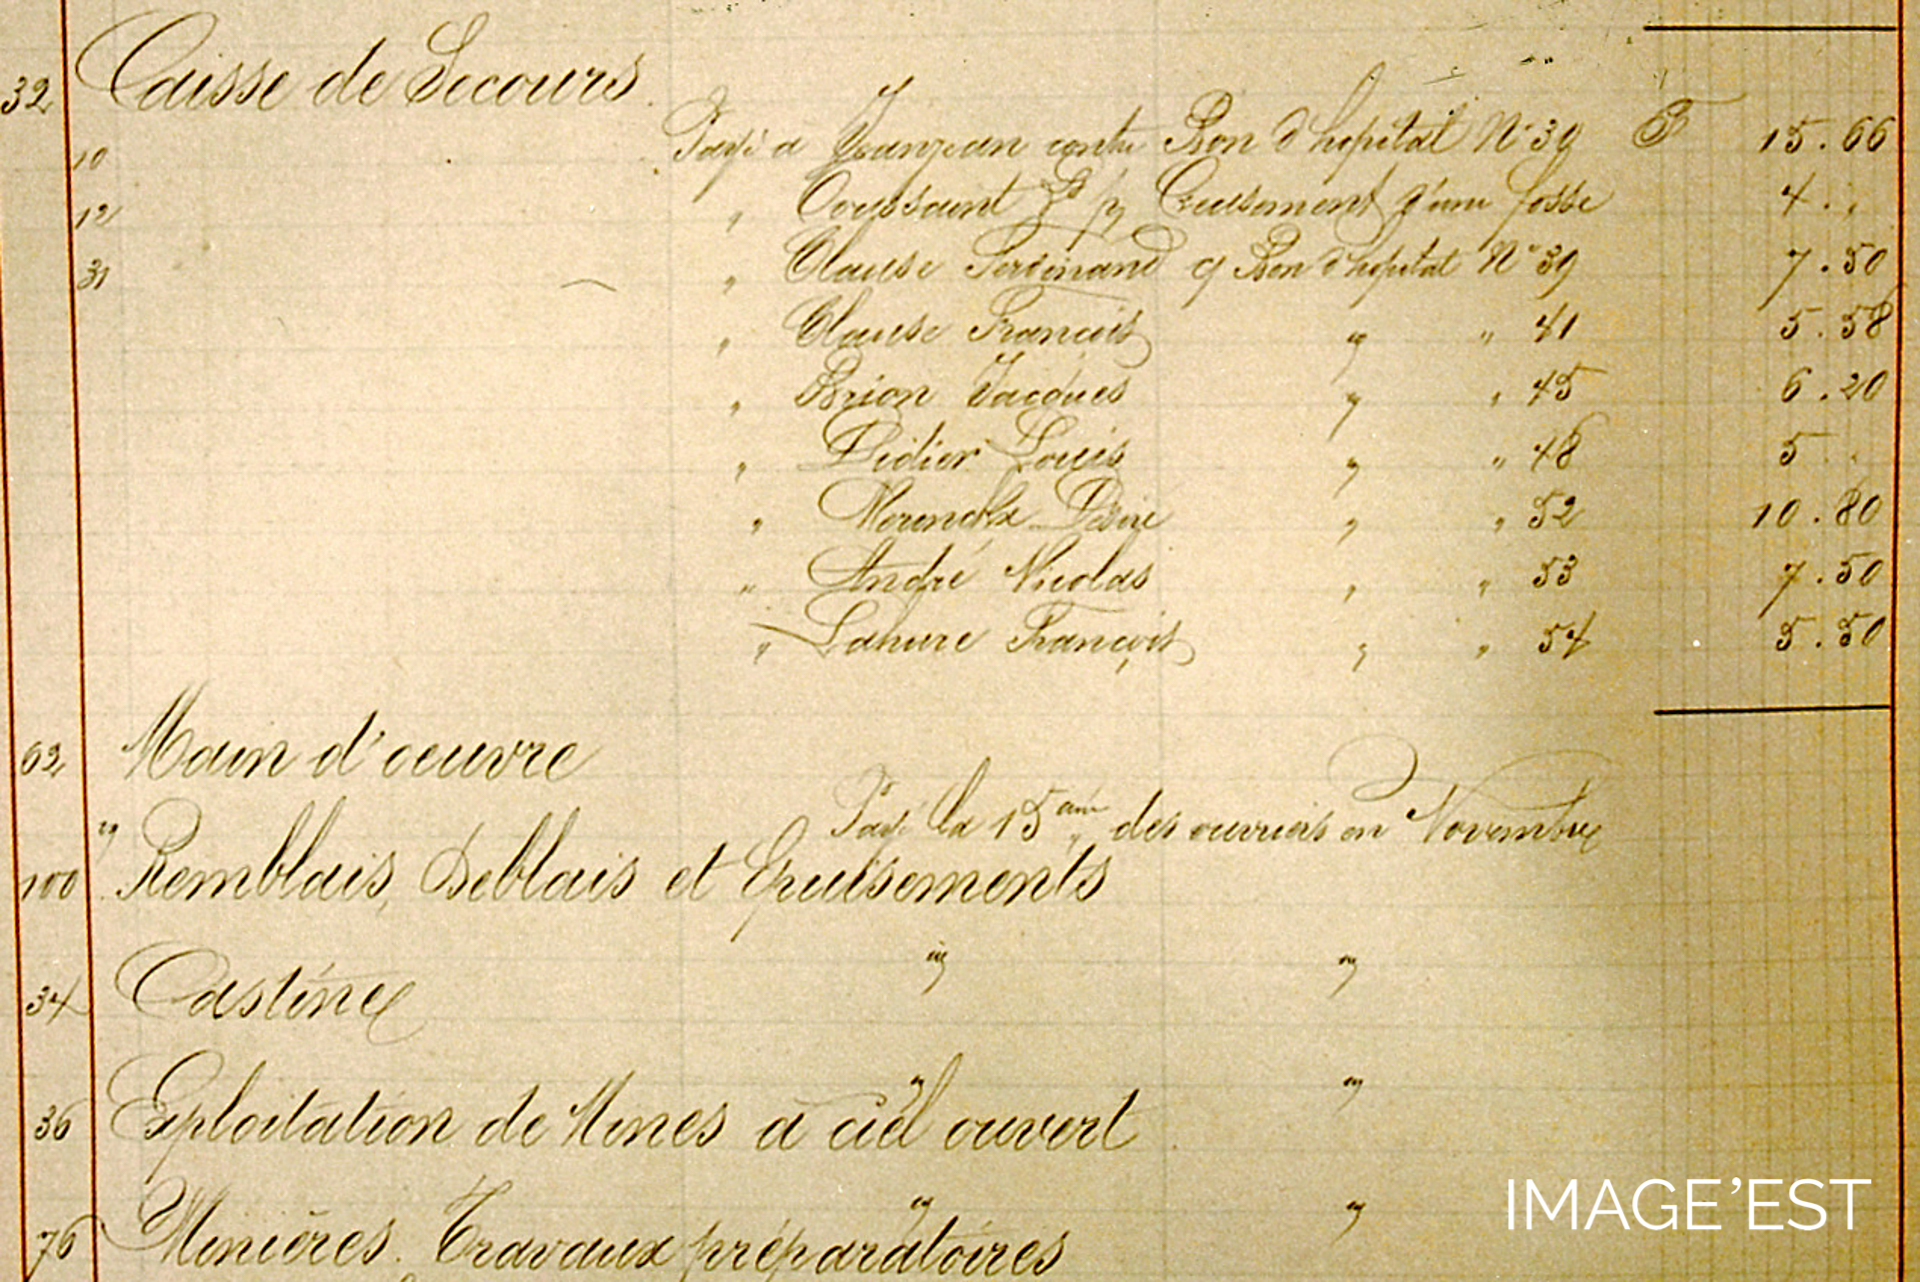 32 Caisse de Secours.
10 Payé a Jeanjean contre Bon d'hopital N° 30 F 15.66
12 " Toussaint Creusement d'une fosse 4. "
31 " Clause Ferdinand c/ Bon d'hopital N° 39 7.50
" Clause François " " 41 5.58
" Brion Jacques " " 45 6.20
" Didier Louis " " 48 5 "
" Désiré " " 52 10.80
" André Nicolas " " 53 7.50
" Lahure François " " 54 5.50
62 Main d'oeuvre
" Payé la 15aine des ouvriers en Novembre
100 Remblais, Deblais et Epuisements
" "
34 Castine
" "
36 Exploitation de Mines à ciel ouvert
" "
76 Minières. Travaux préparatoires
IMAGE'EST